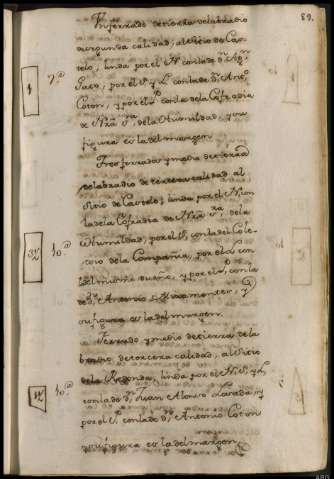 89.
Un ferrado de tierra de labradio
de segunda calidad, al sitio de Cas-
telo, linda por el N. con la de Dn.
Pazo, por el S. y L. con la de Dn. Anto.
Coton, y por el P. con la de la Cofradia
de Nra. Sra. de la Humildad, y su
figura es la del margen.
Tres ferrados y medio de tierra
de labradio de tercera calidad al
sitio de Castelo; linda por el N. con
la de la Cofradia de Nra. Sra. de la
Humildad, por el S. con la del Cole-
cio de la Compañia, por el L. con
del mismo dueño, y por el P. con la
de Dn. Antonio y
su figura es la del margen.
Ferrado y medio de tierra de la-
bradio, de tercera calidad, al sitio
de la Redonda, linda por el N. y L.
con la de Dn. Juan Alonso Losada, y
por el S. con la de Dn. Antonio Coton
su figura es la del margen.
1
7.a
3½
10.a
1½
10.a